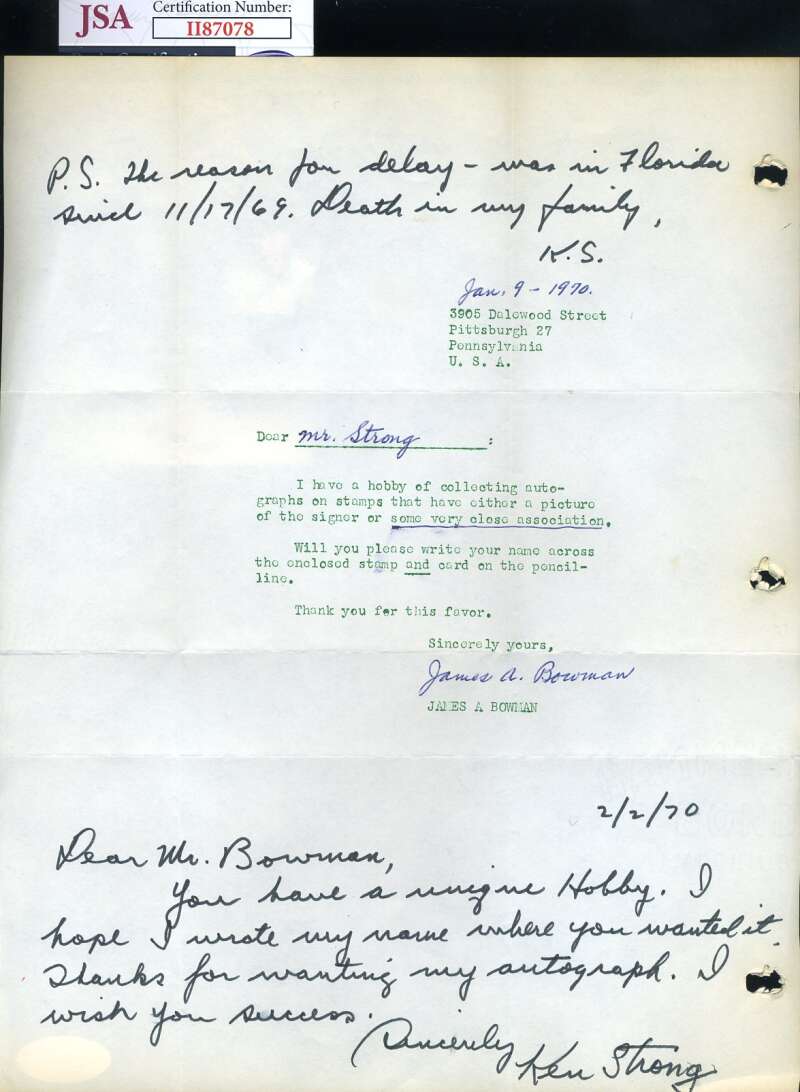 JSA
Certification Number:
II87078
P.S. The reason for delay – was in Florida
since 11/17/69. Death in my family,
K.S.
Jan. 9 - 1970.
3905 Dalewood Street
Pittsburgh 27
Pennsylvania
U. S. A.
Dear Mr. Strong :
I have a hobby of collecting auto-
graphs on stamps that have either a picture
of the signer or some very close association.
Will you please write your name across
the enclosed stamp and card on the pencil-
line.
Thank you for this favor.
Sincerely yours,
James A. Bowman
JAMES A BOWMAN
2/2/70
Dear Mr. Bowman,
You have a unique Hobby. I
hope I wrote my name where you wanted it.
Thanks for wanting my autograph. I
wish you success.
Sincerely
Ken Strong